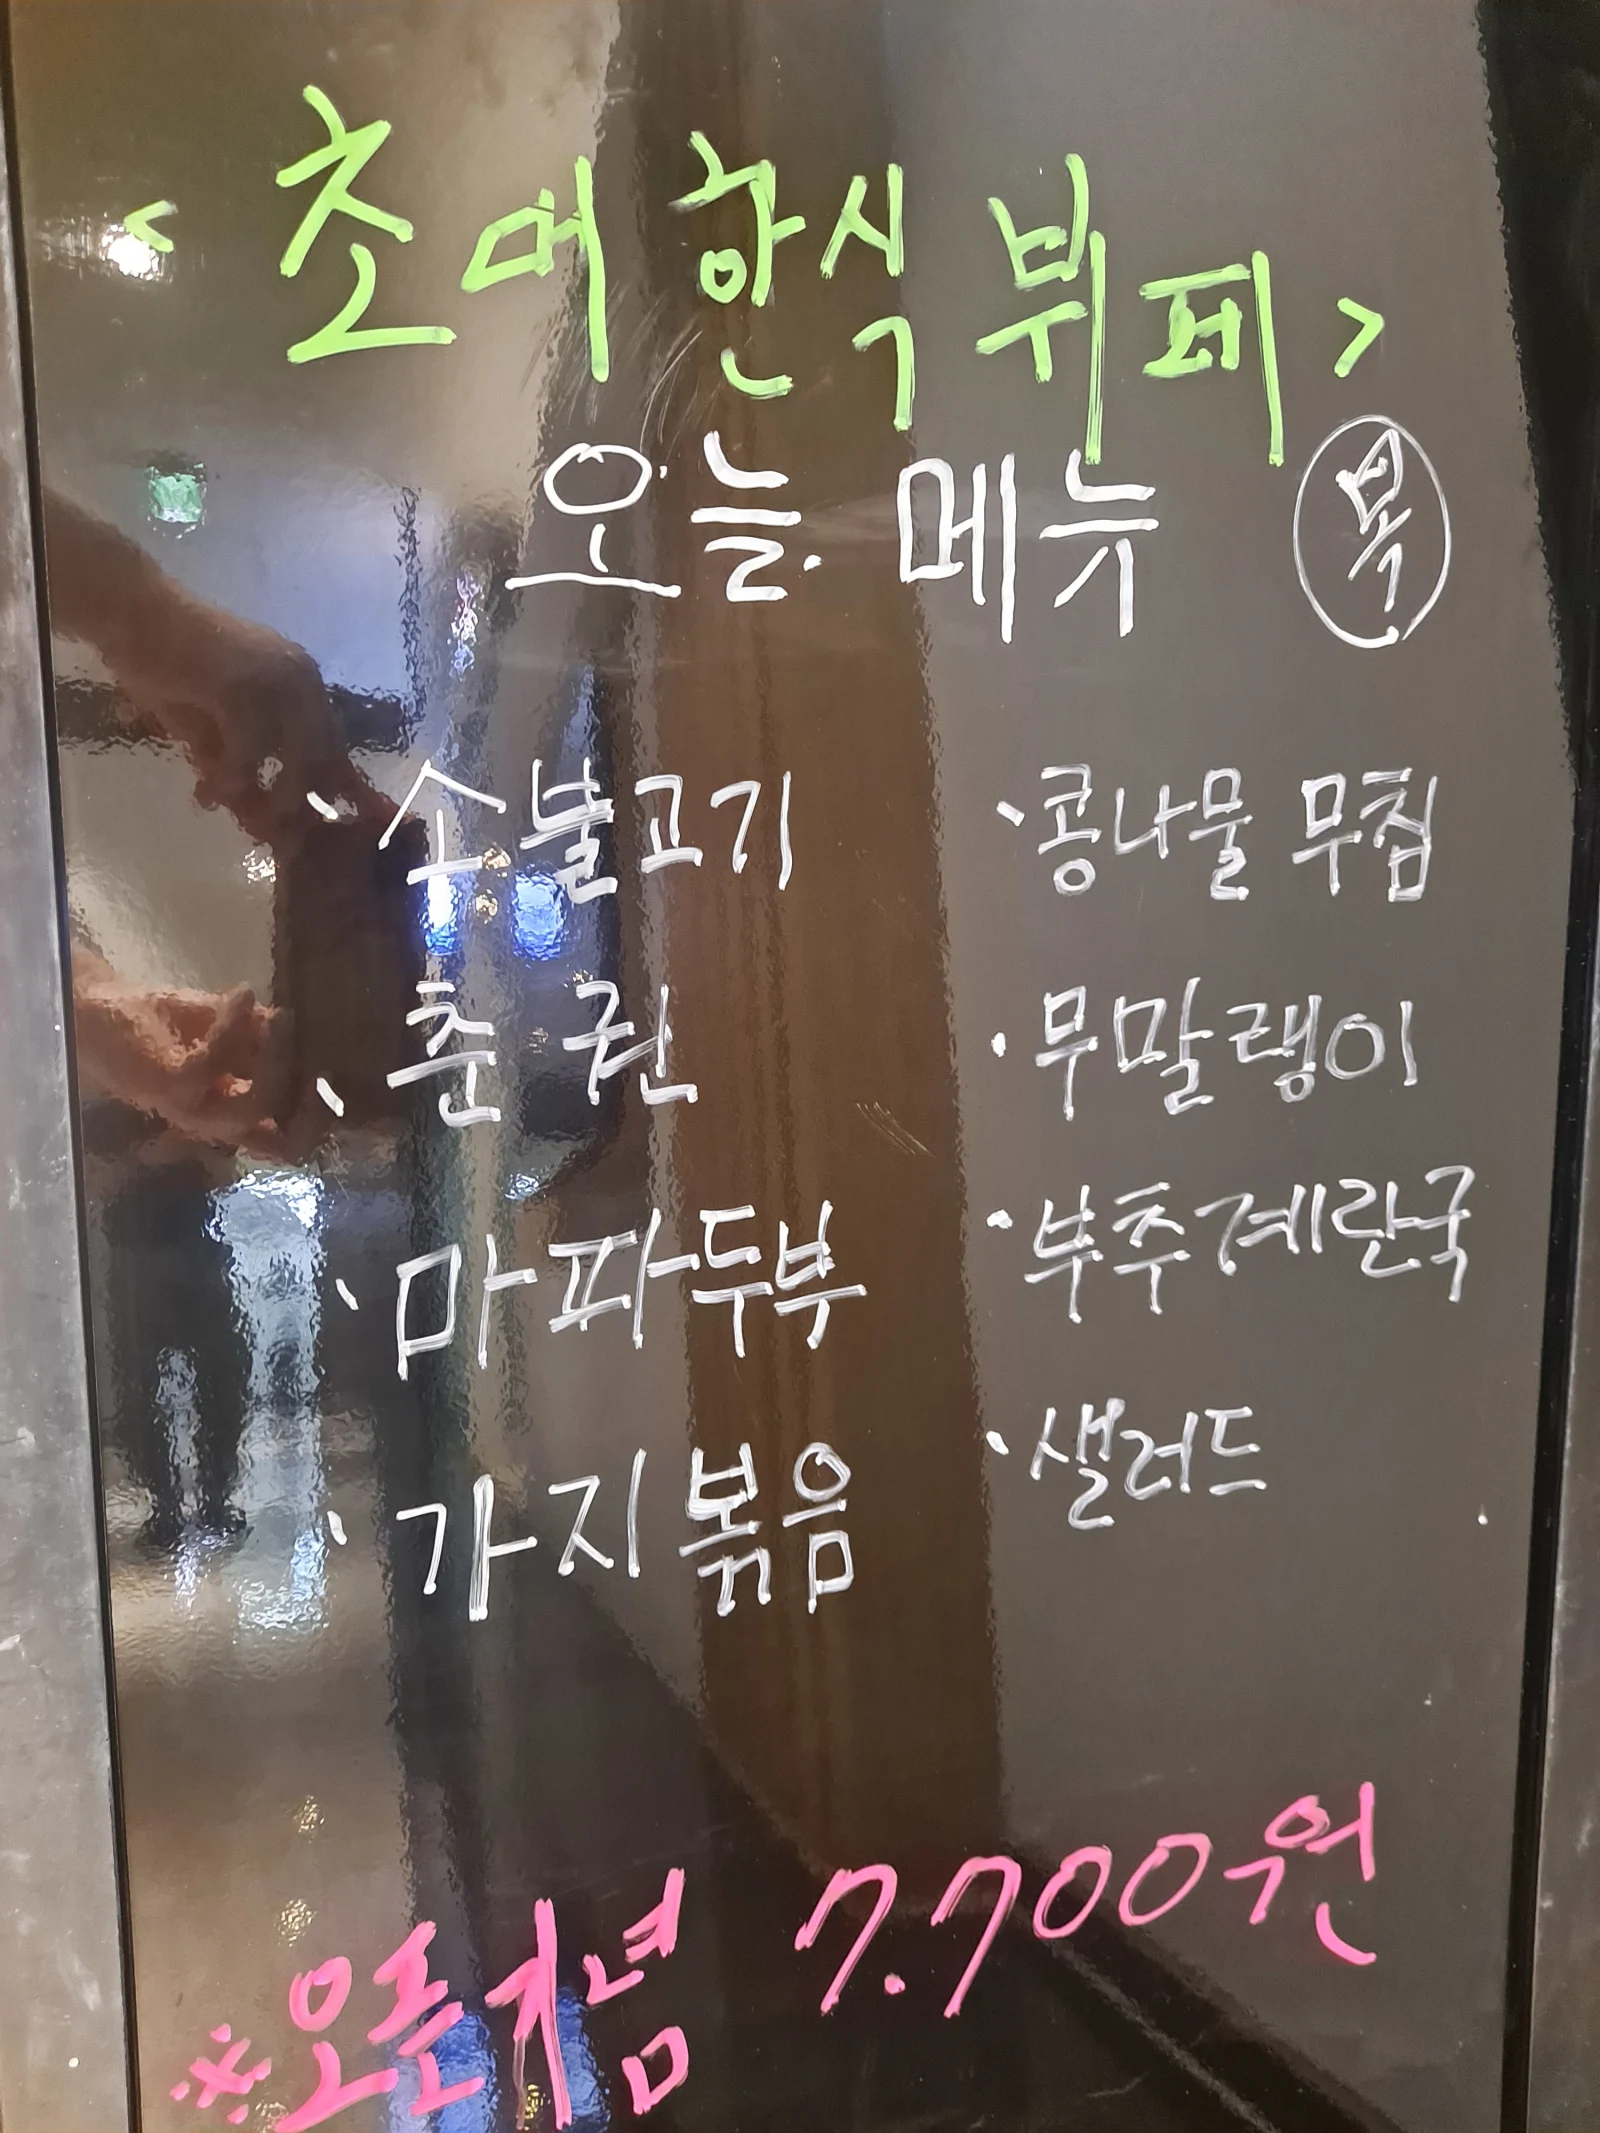 <초대 한식 뷔페>
오늘 메뉴
· 소불고기
· 춘권
· 마파두부
· 가지볶음
· 콩나물 무침
· 무말랭이
· 부추계란국
· 샐러드
※오픈기념 7.700원